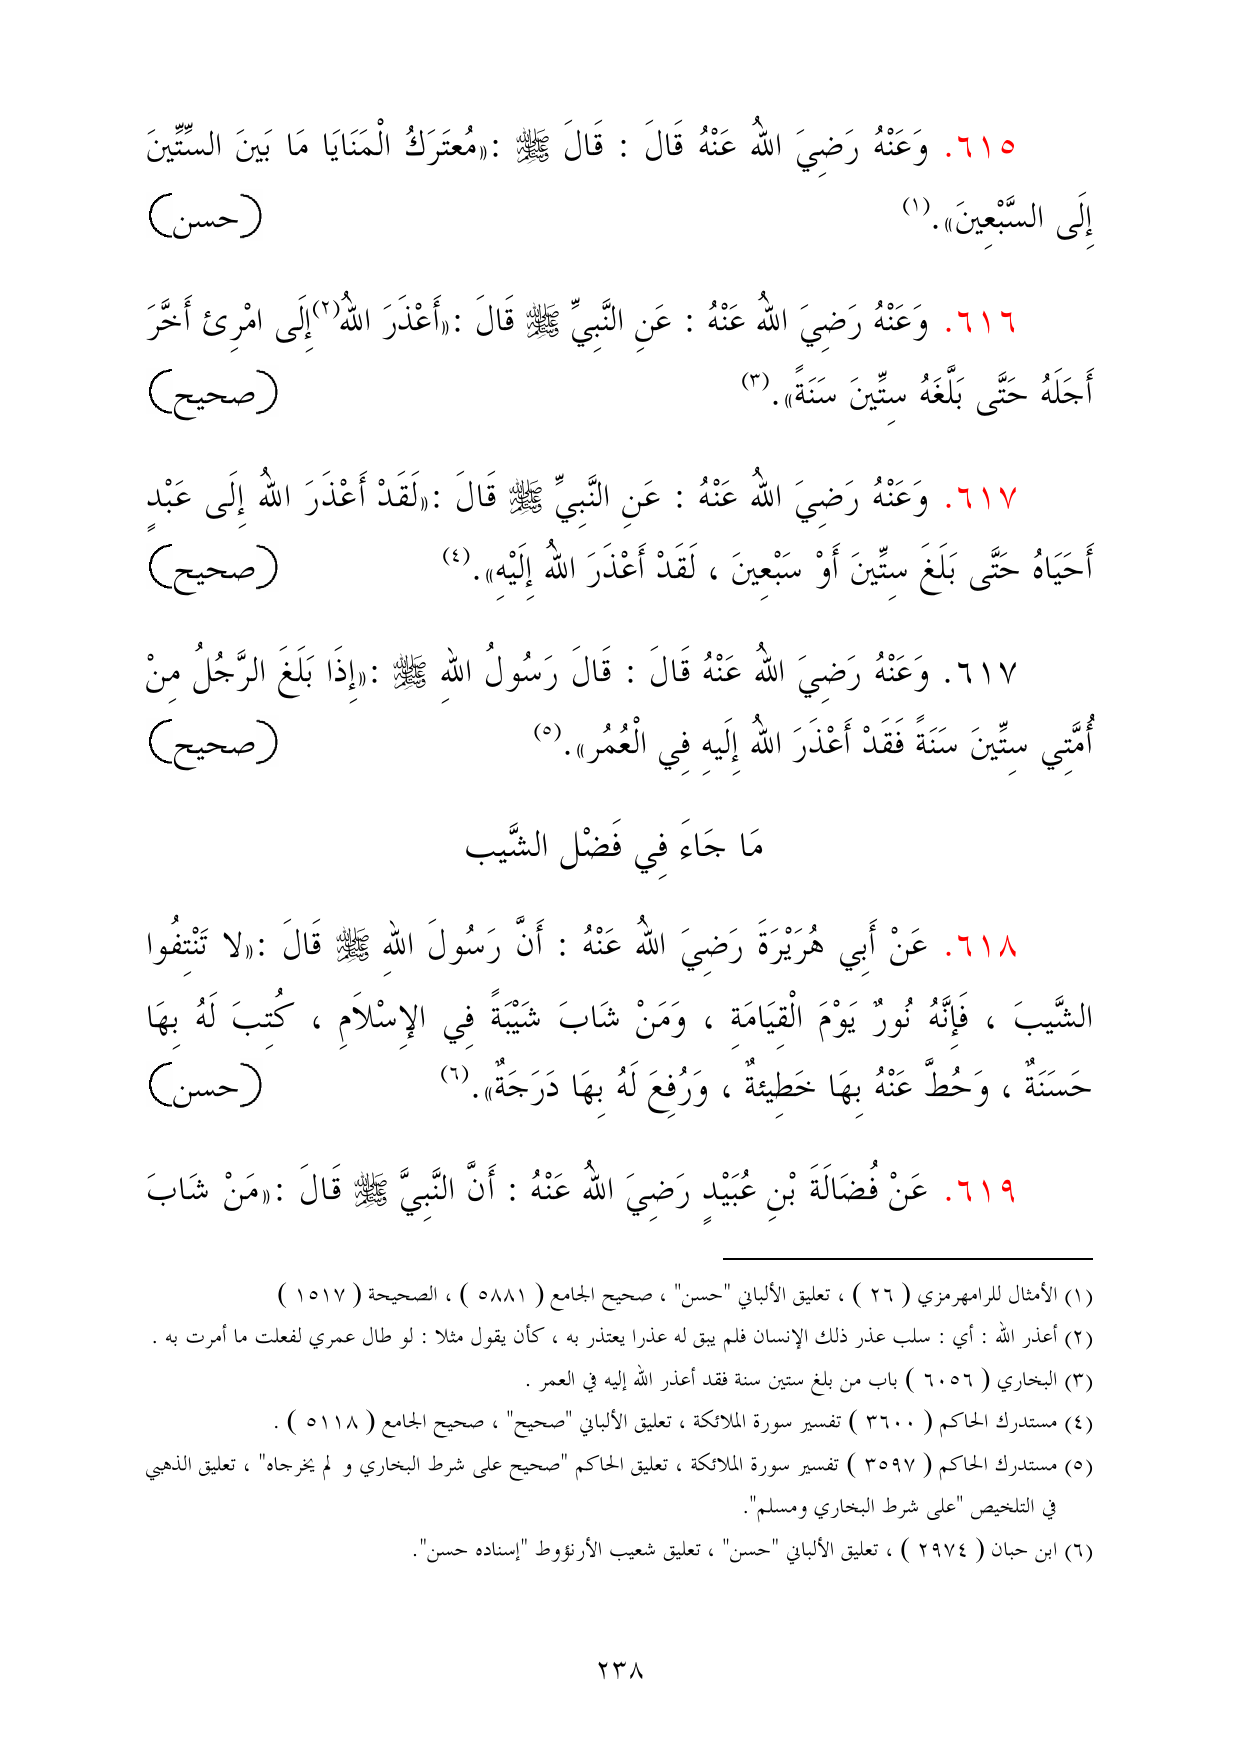 ٦١٥. وَعَنْهُ رَضِيَ اللهُ عَنْهُ قَالَ : قَالَ ﷺ :«مُعتَرَكُ الْمَنَايَا مَا بَينَ السِّتِّينَ
إِلَى السَّبْعِينَ».(١) (حسن)
٦١٦. وَعَنْهُ رَضِيَ اللهُ عَنْهُ : عَنِ النَّبِيِّ ﷺ قَالَ :«أَعْذَرَ اللهُ(٢)إِلَى امْرِئ أَخَّرَ
أَجَلَهُ حَتَّى بَلَّغَهُ سِتِّينَ سَنَةً».(٣) (صحيح)
٦١٧. وَعَنْهُ رَضِيَ اللهُ عَنْهُ : عَنِ النَّبِيِّ ﷺ قَالَ :«لَقَدْ أَعْذَرَ اللهُ إِلَى عَبْدٍ
أَحيَاهُ حَتَّى بَلَغَ سِتِّينَ أَوْ سَبْعِينَ ، لَقَدْ أَعْذَرَ اللهُ إِلَيْهِ».(٤) (صحيح)
٦١٧. وَعَنْهُ رَضِيَ اللهُ عَنْهُ قَالَ : قَالَ رَسُولُ اللهِ ﷺ :«إِذَا بَلَغَ الرَّجُلُ مِنْ
أُمَّتِي سِتِّينَ سَنَةً فَقَدْ أَعْذَرَ اللهُ إِلَيهِ فِي الْعُمُر».(٥) (صحيح)
مَا جَاءَ فِي فَضْل الشَّيب
٦١٨. عَنْ أَبِي هُرَيْرَةَ رَضِيَ اللهُ عَنْهُ : أَنَّ رَسُولَ اللهِ ﷺ قَالَ :«لا تَنْتِفُوا
الشَّيبَ ، فَإِنَّهُ نُورٌ يَوْمَ الْقِيَامَةِ ، وَمَنْ شَابَ شَيْبَةً فِي الإِسْلاَمِ ، كُتِبَ لَهُ بِهَا
حَسَنَةٌ ، وَحُطَّ عَنْهُ بِهَا خَطِيئةٌ ، وَرُفِعَ لَهُ بِهَا دَرَجَةٌ».(٦) (حسن)
٦١٩. عَنْ فُضَالَةَ بْنِ عُبَيْدٍ رَضِيَ اللهُ عَنْهُ : أَنَّ النَّبِيَّ ﷺ قَالَ :«مَنْ شَابَ
(١) الأمثال للرامهرمزي ( ٢٦ ) ، تعليق الألباني "حسن" ، صحيح الجامع ( ٥٨٨١ ) ، الصحيحة ( ١٥١٧ )
(٢) أعذر الله : أي : سلب عذر ذلك الإنسان فلم يبق له عذرا يعتذر به ، كأن يقول مثلا : لو طال عمري لفعلت ما أمرت به .
(٣) البخاري ( ٦٠٥٦ ) باب من بلغ ستين سنة فقد أعذر الله إليه في العمر .
(٤) مستدرك الحاكم ( ٣٦٠٠ ) تفسير سورة الملائكة ، تعليق الألباني "صحيح" ، صحيح الجامع ( ٥١١٨ ) .
(٥) مستدرك الحاكم ( ٣٥٩٧ ) تفسير سورة الملائكة ، تعليق الحاكم "صحيح على شرط البخاري و لم يخرجاه" ، تعليق الذهبي
في التلخيص "على شرط البخاري ومسلم".
(٦) ابن حبان ( ٢٩٧٤ ) ، تعليق الألباني "حسن" ، تعليق شعيب الأرنؤوط "إسناده حسن".
٢٣٨